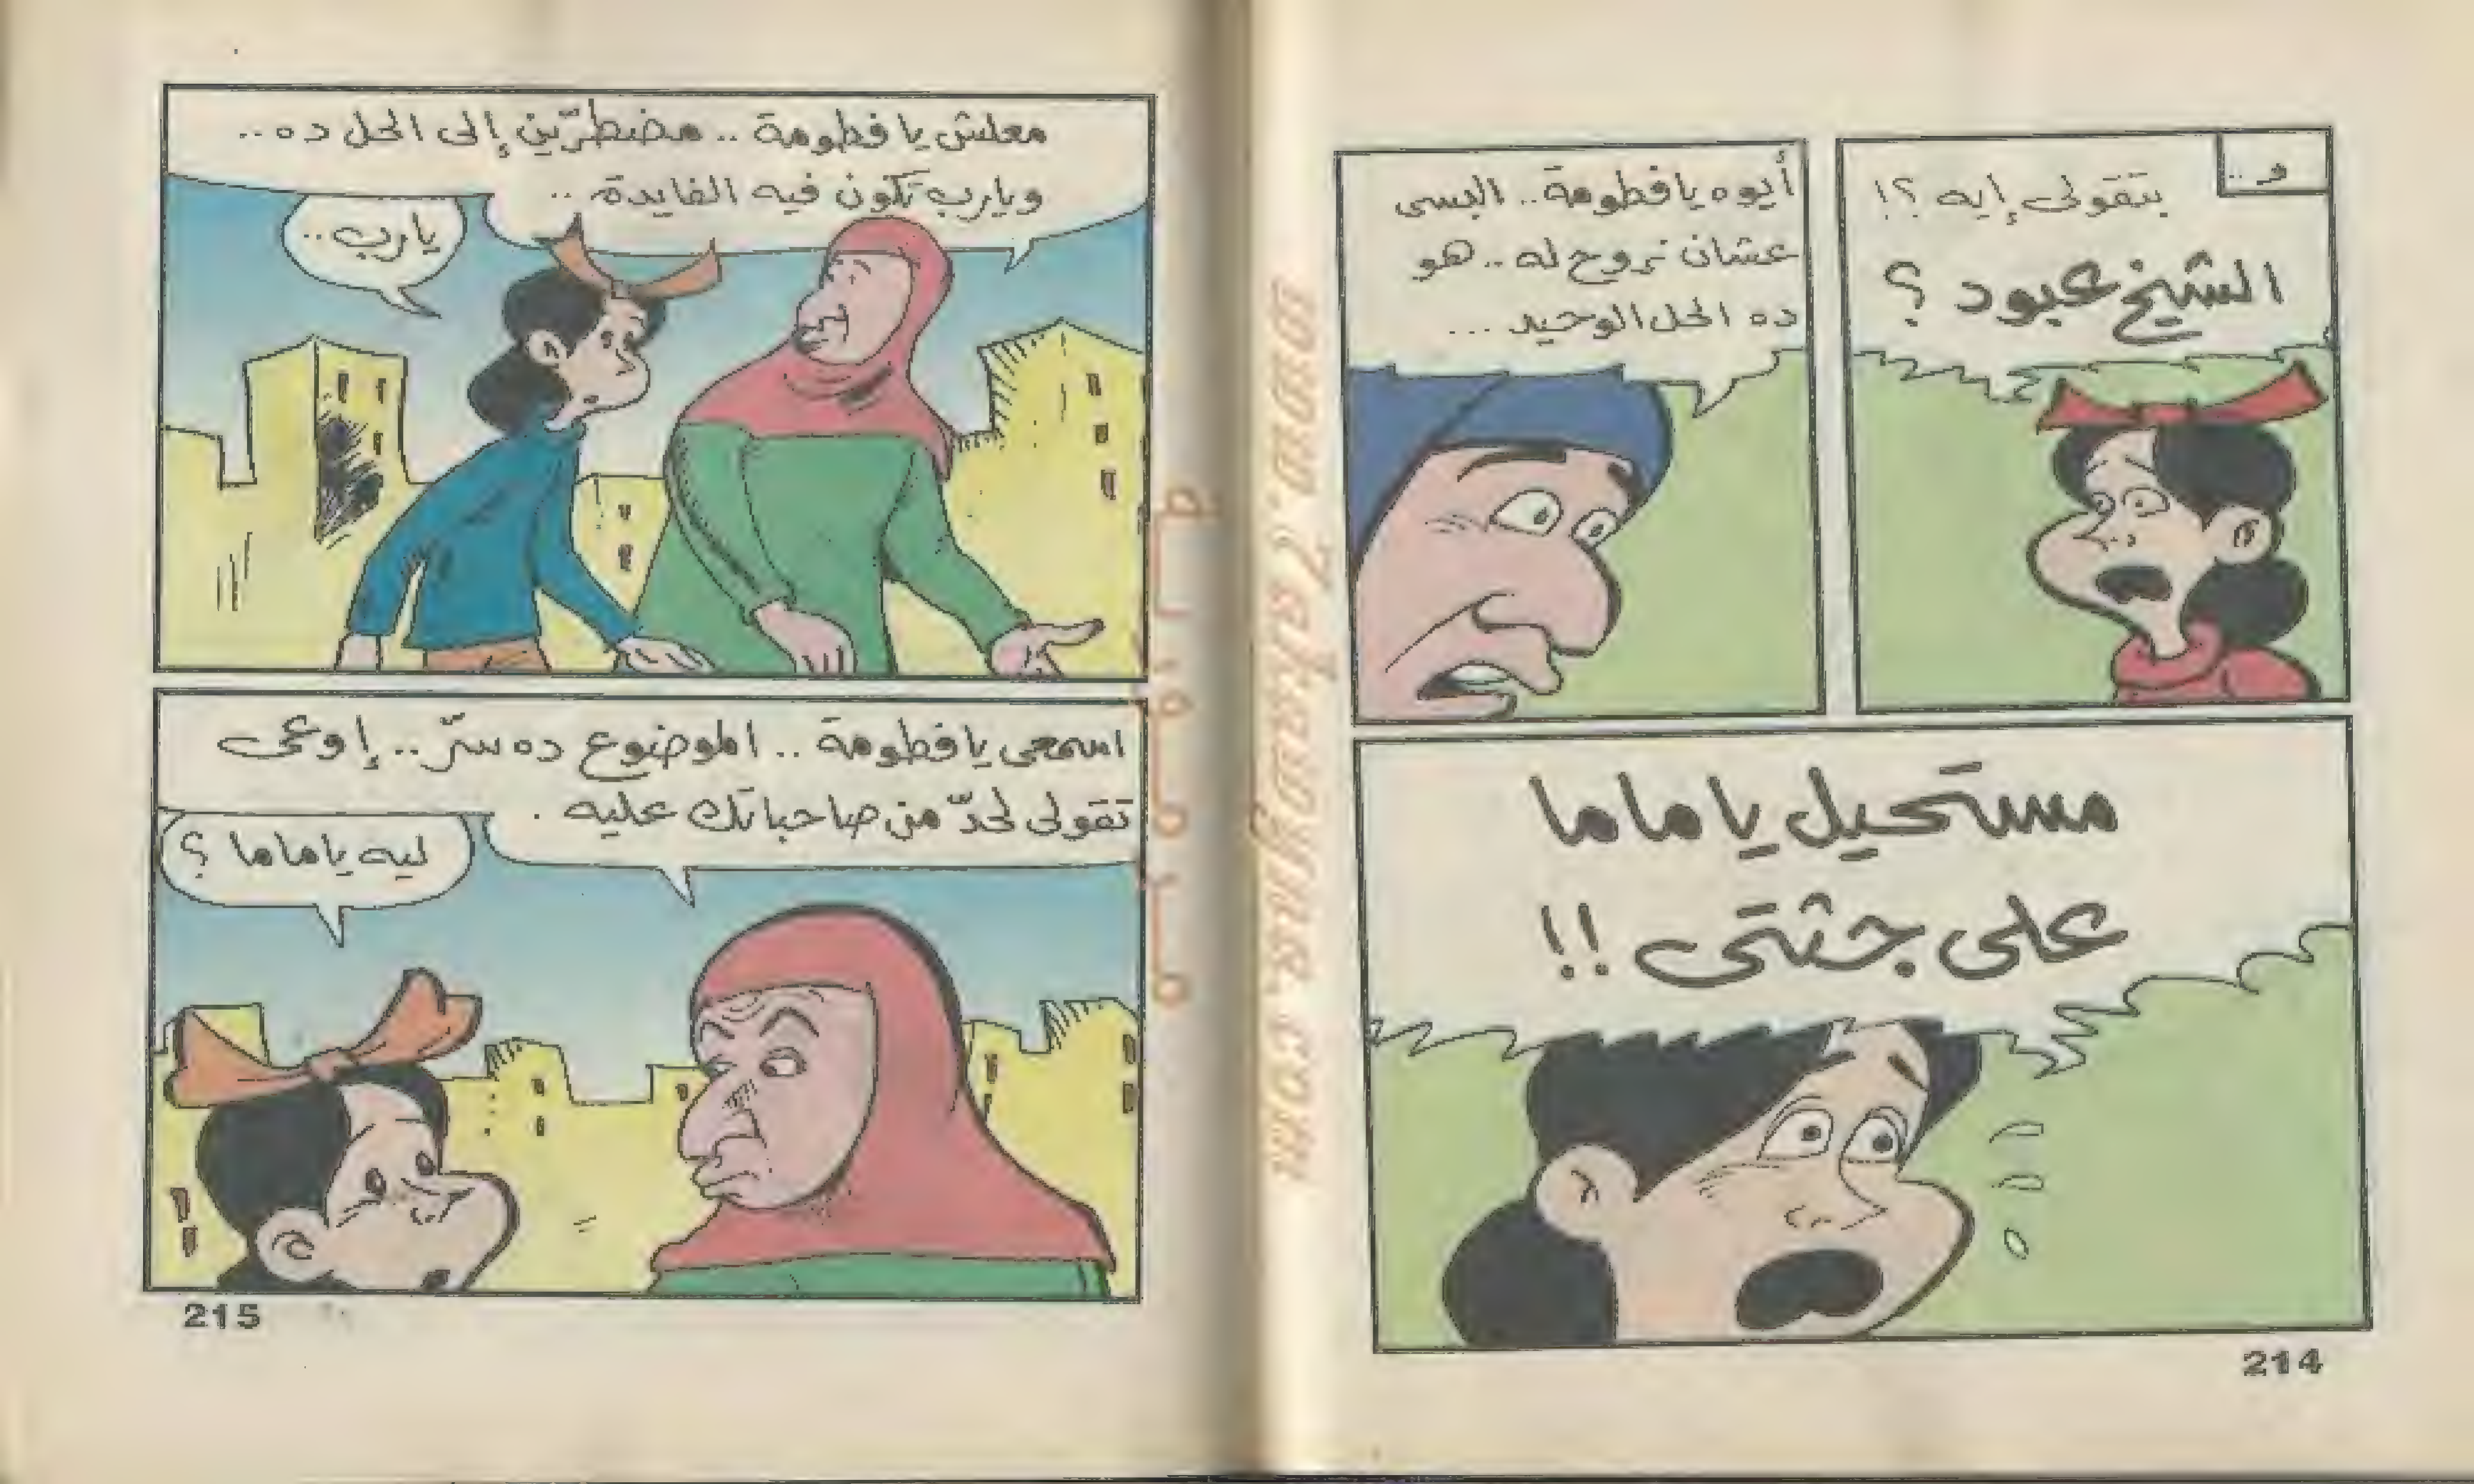 و ..
بتقولى إيه ؟!
الشيخ عبود ؟
أيوه يا فطومة .. البسى
عشان نروح له .. هو
ده الحل الوحيد ...
مستحيل يا ماما
على جثتى !!
214
معلش يا فطومة .. مضطرّين إلى الحل ده ..
ويارب تكون فيه الفايدة ..
يارب ..
اسمعى يا فطومة .. الموضوع ده سرّ .. إوعى
تقولى لحدّ من صاحباتك عليه .
ليه يا ماما ؟
215